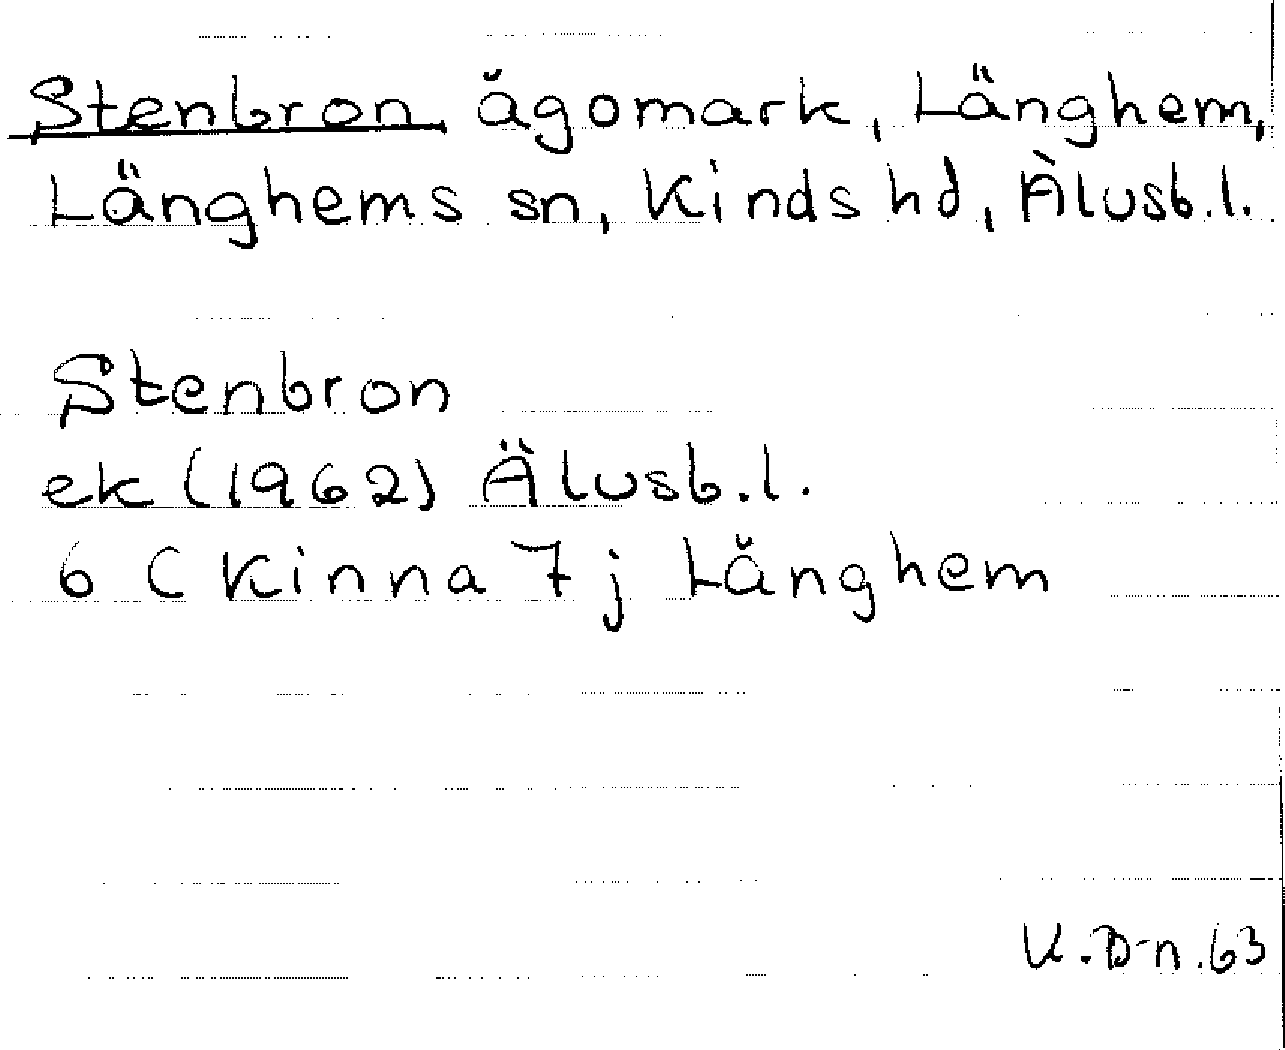 Stenbron, ägomark, Länghem,
Länghems sn, Kinds hd, Älvsb.l.
Stenbron
ek (1962) Älvsb.l.
6 C Kinna 7 j Länghem
K.D-n.63